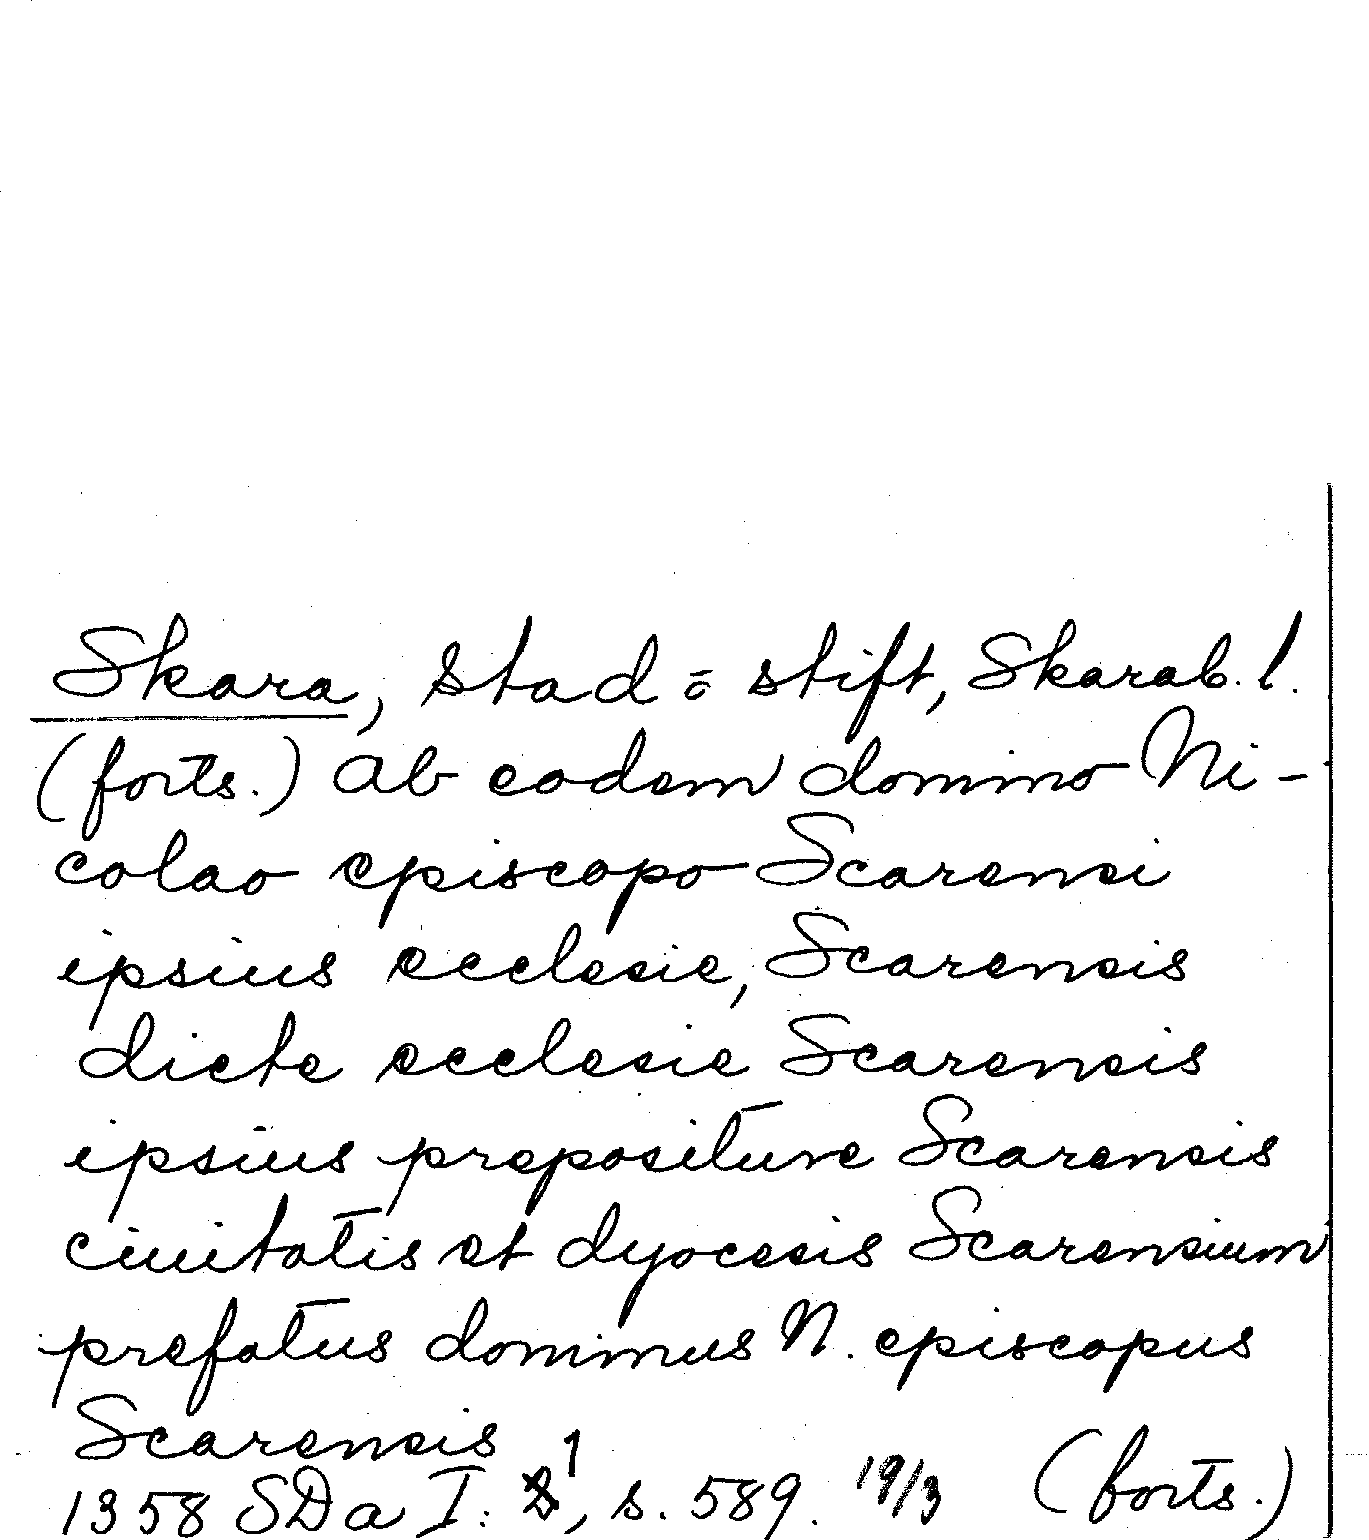 Skara, stad o stift, Skarab. l.
(forts.) ab eodem domino Ni-
colao episcopo Scarensi
ipsius ecclesie, Scarensis
dicte ecclesie Scarensis
ipsius prepositure Scarensis
ciuitatis et dyocesis Scarensium
prefatus dominus N. episcopus
Scarensis
1358 SDa I: 1, s. 589. 19/3 (forts.)